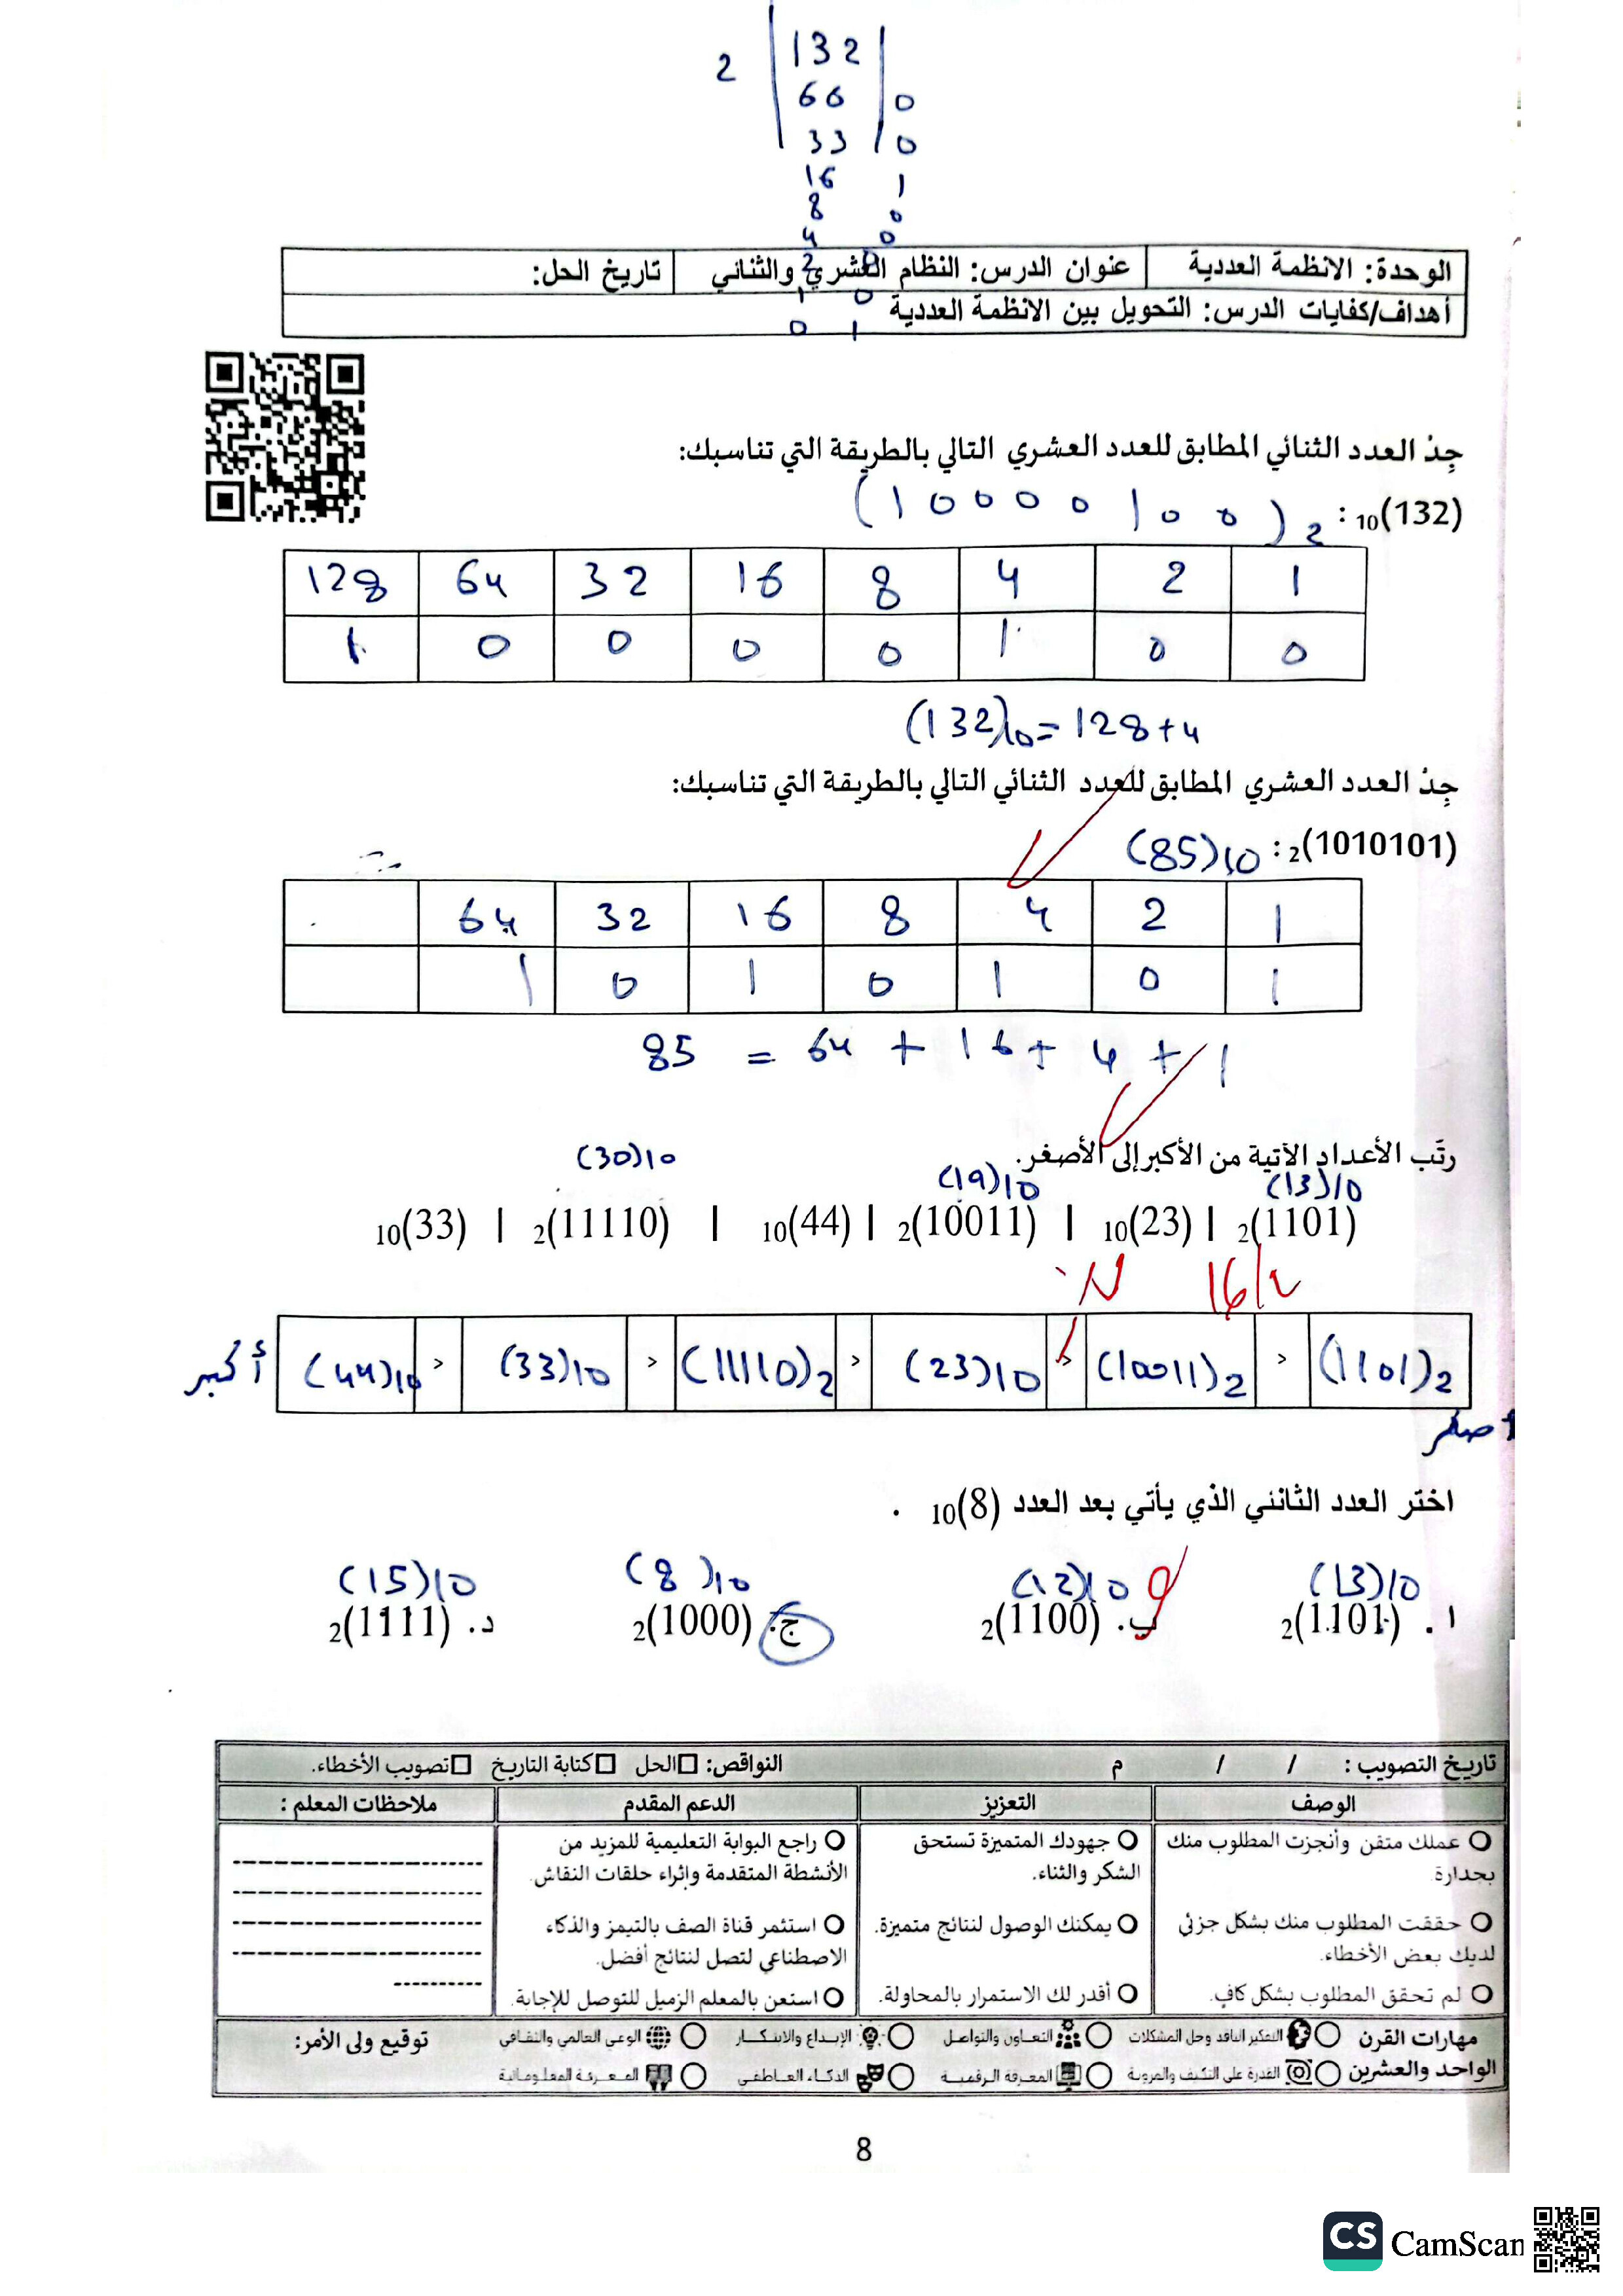 2 | 132 |
66 | 0
33 | 0
16 1
8 0
4 0
2 0
1 0
0 1
الوحدة: الانظمة العددية | عنوان الدرس: النظام العشري والثنائي | تاريخ الحل:
أهداف/كفايات الدرس: التحويل بين الانظمة العددية
جِدْ العدد الثنائي المطابق للعدد العشري التالي بالطريقة التي تناسبك:
(132)10 : (10000100)2
128 64 32 16 8 4 2 1
1 0 0 0 0 1 0 0
(132)10 = 128+4
جِدْ العدد العشري المطابق للعدد الثنائي التالي بالطريقة التي تناسبك:
(1010101)2 : (85)10
64 32 16 8 4 2 1
1 0 1 0 1 0 1
85 = 64 + 16 + 4 + 1
رتَب الأعداد الآتية من الأكبر إلى الأصغر.
(30)10 (19)10 (13)10
10(33) | 2(11110) | 10(44) | 2(10011) | 10(23) | 2(1101)
16/2
أكبر (44)10 > (33)10 > (11110)2 > (23)10 > (10011)2 > (1101)2
اختر العدد الثانئي الذي يأتي بعد العدد 10(8) .
(15)10 (8)10 (12)10 (13)10
ا. 2(1101) ب. 2(1100) ج. 2(1000) د. 2(1111)
تاريخ التصويب : / / م النواقص: الحل كتابة التاريخ تصويب الأخطاء.
الوصف | التعزيز | الدعم المقدم | ملاحظات المعلم :
عملك متفن وأنجزت المطلوب منك | جهودك المتميزة تستحق | راجع البوابة التعليمية للمزيد من
بجدارة. | الشكر والثناء. | الأنشطة المتقدمة وإثراء حلقات النقاش.
حققت المطلوب منك بشكل جزئي | يمكنك الوصول لنتائج متميزة. | استثمر قناة الصف بالتيمز والذكاء
لديك بعض الأخطاء. | الاصطناعي لتصل لنتائج أفضل.
لم تحقق المطلوب بشكل كافٍ. | أقدر لك الاستمرار بالمحاولة. | استعن بالمعلم الزميل للتوصل للإجابة.
مهارات القرن التفكير الناقد وحل المشكلات التعاون والتواصل الإبداع والابتكار الوعي العالمي والثقافي توقيع ولى الأمر:
الواحد والعشرين القدرة على التكيف والمرونة المعرفة الرقمية الذكاء العاطفي المعرفة المعلوماتية
8
CS CamScan